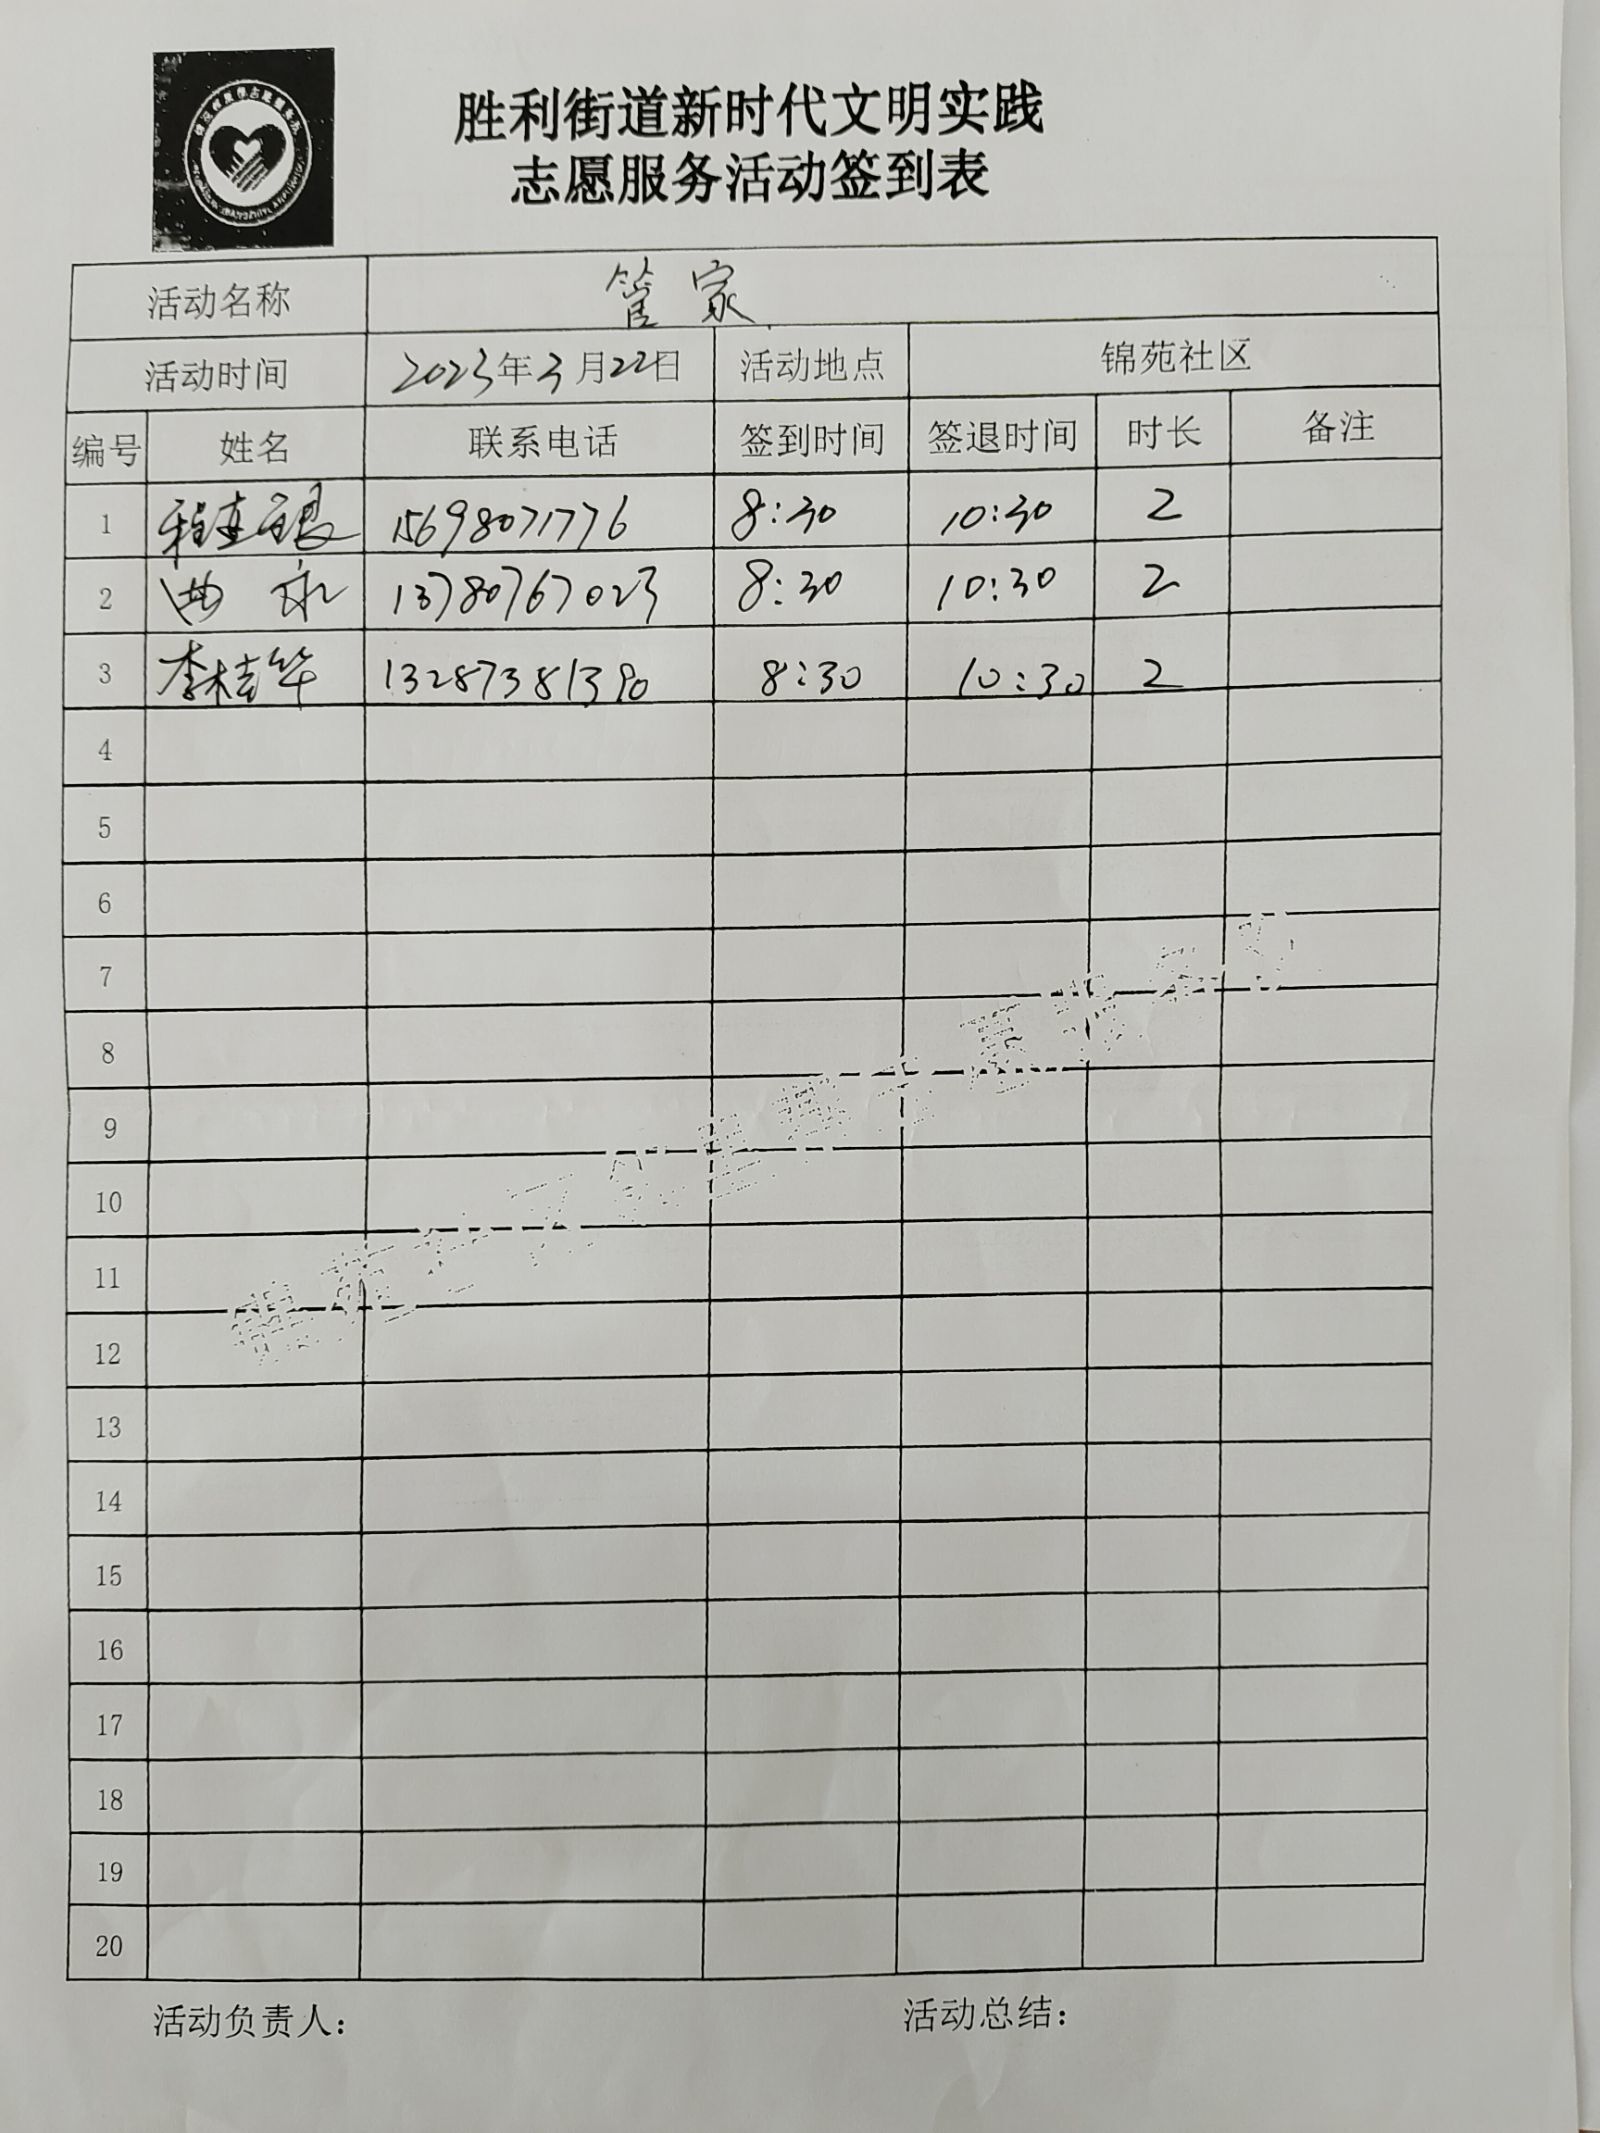 胜利街道新时代文明实践
志愿服务活动签到表
活动名称 管家
活动时间 2023年3月22日 活动地点 锦苑社区
编号 姓名 联系电话 签到时间 签退时间 时长 备注
1 15698071776 8:30 10:30 2
2 曲 13780767023 8:30 10:30 2
3 李桂华 13287381390 8:30 10:30 2
4
5
6
7
8
9
10
11
12
13
14
15
16
17
18
19
20
活动负责人： 活动总结：